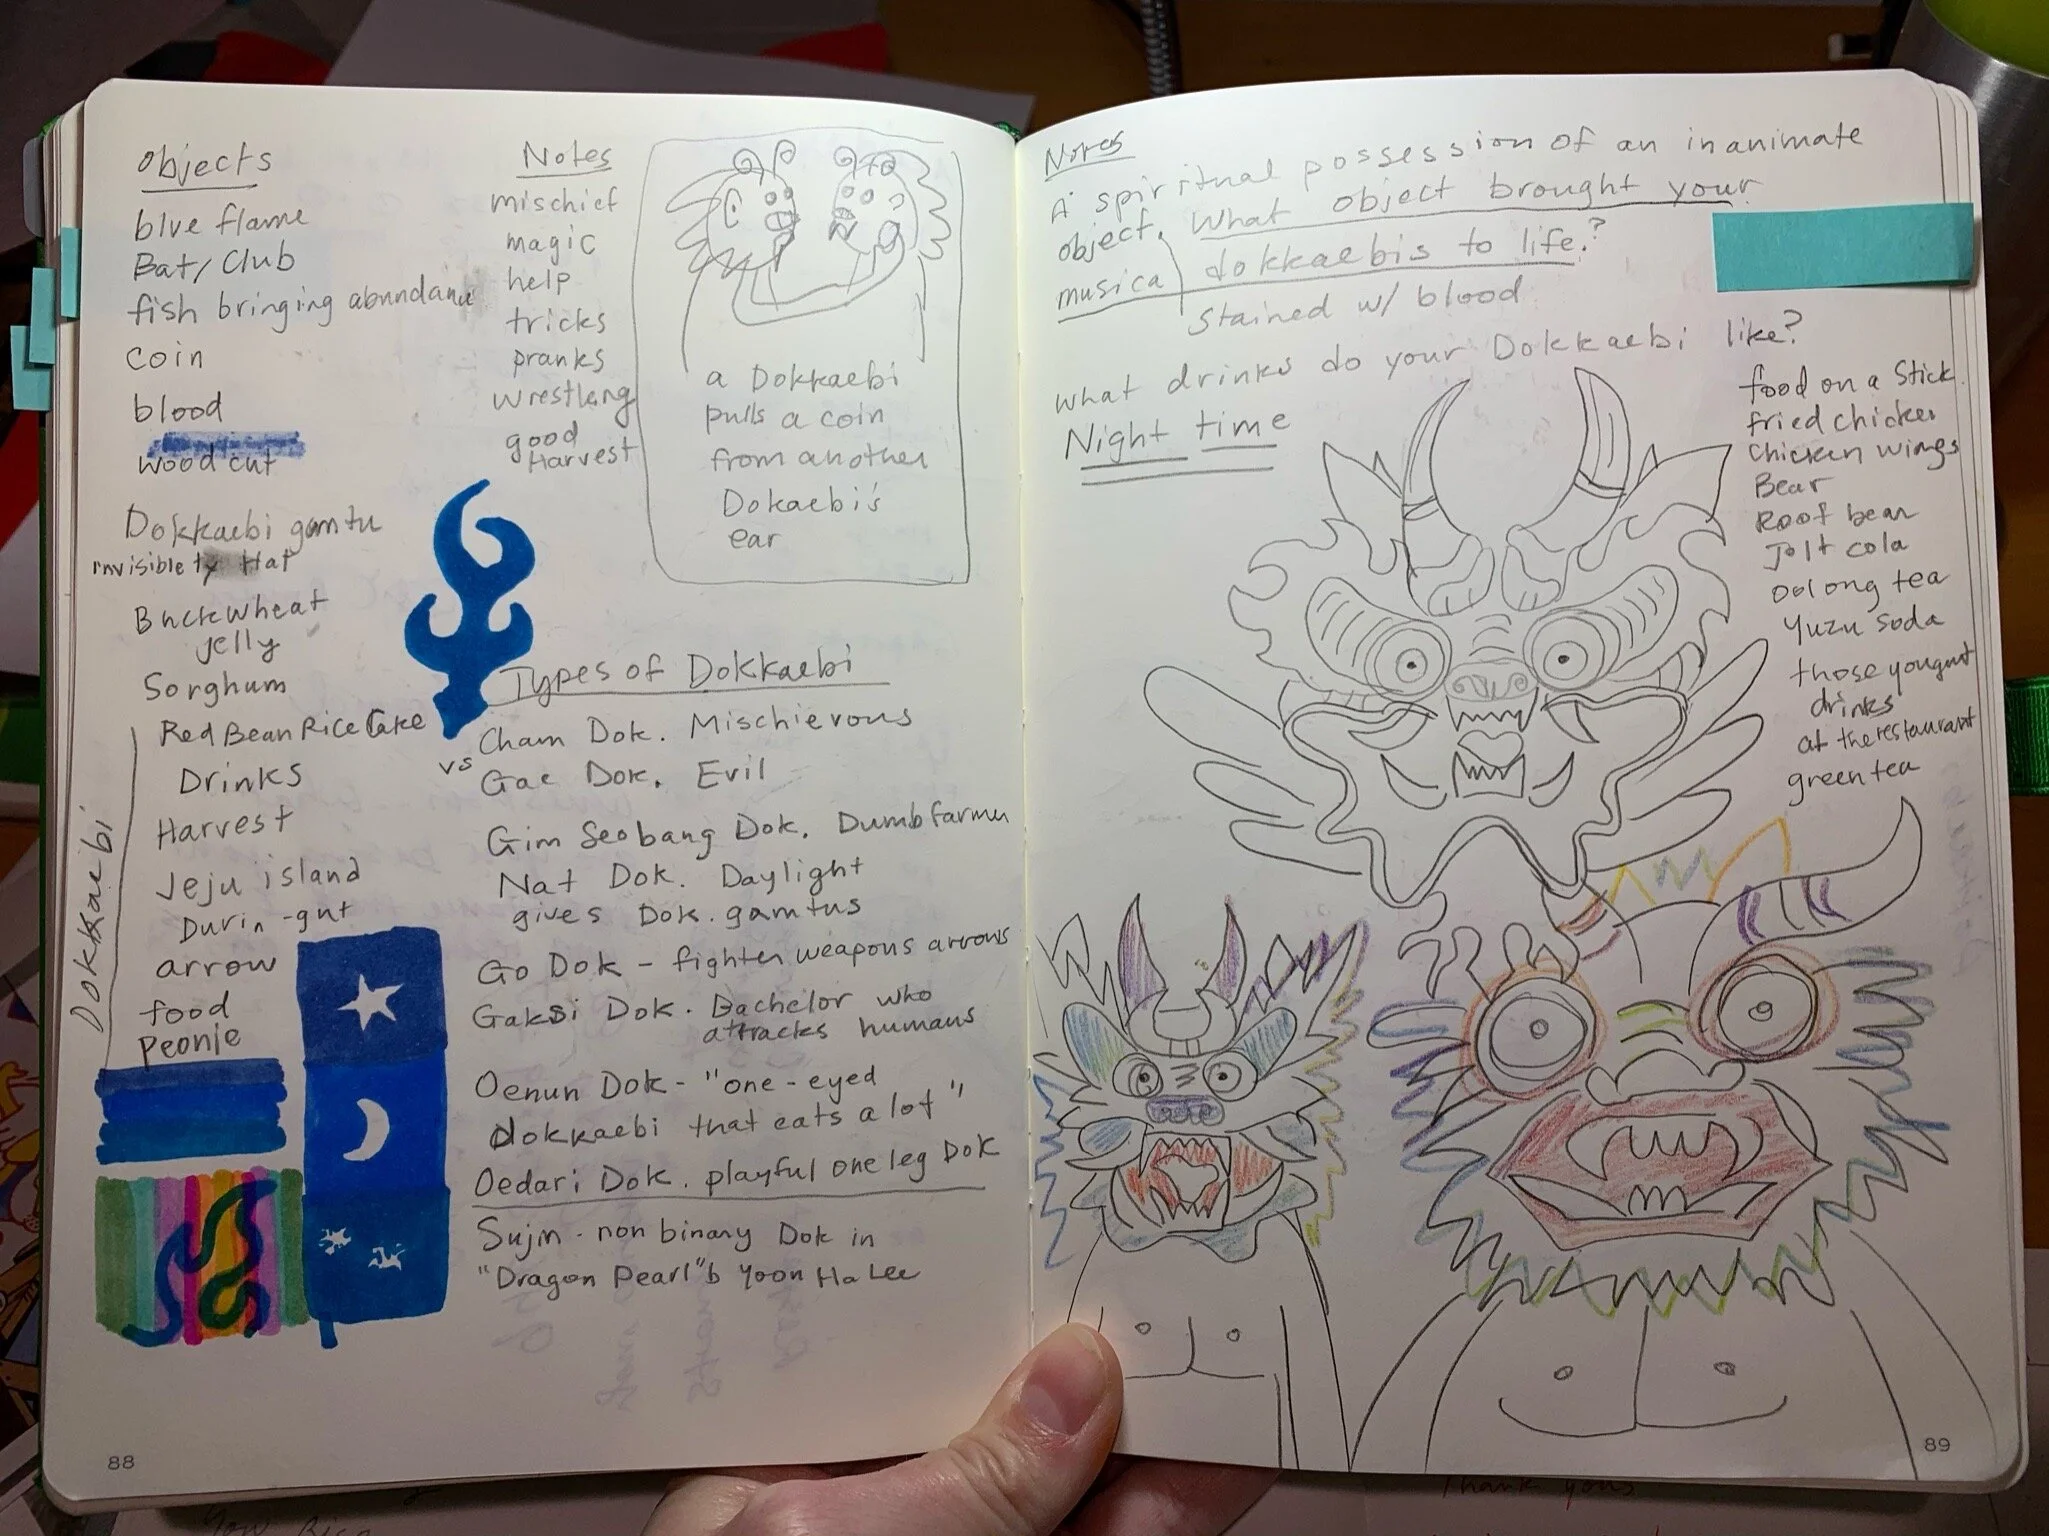 objects
blue flame
Bat/Club
fish bringing abundanu
coin
blood
wood cut
Dokkaebi gamtu
invisiblety Hat
Buckwheat
jelly
Sorghum
Red Bean Rice Cake
Drinks
Harvest
Jeju island
Durin-gut
arrow
food
Peonie
Dokkaebi
Notes
mischief
magic
help
tricks
pranks
wrestlang
good
Harvest
a Dokkaebi
pulls a coin
from another
Dokaebi's
ear
Types of Dokkaebi
Cham Dok. Mischievous
vs
Gae Dok. Evil
Gim Seobang Dok. Dumb farmer
Nat Dok. Daylight
gives Dok. gamtus
Go Dok - fighter weapons arrows
Gaksi Dok. Bachelor who
attracks humans
Oenun Dok - "one-eyed
dokkaebi that eats a lot"
Oedari Dok. playful one leg Dok
Sujin - non binary Dok in
"Dragon Pearl" b Yoon Ha Lee
88
Notes
A spiritual possession of an inanimate
object. What object brought your
musica dokkaebis to life?
Stained w/ blood
what drinks do your Dokkaebi like?
Night time
food on a Stick
fried chicken
chicken wings
Bear
Root bear
Jolt cola
oolong tea
Yuzu soda
those yougurt
drinks
at the restaurant
green tea
89
Thank yous